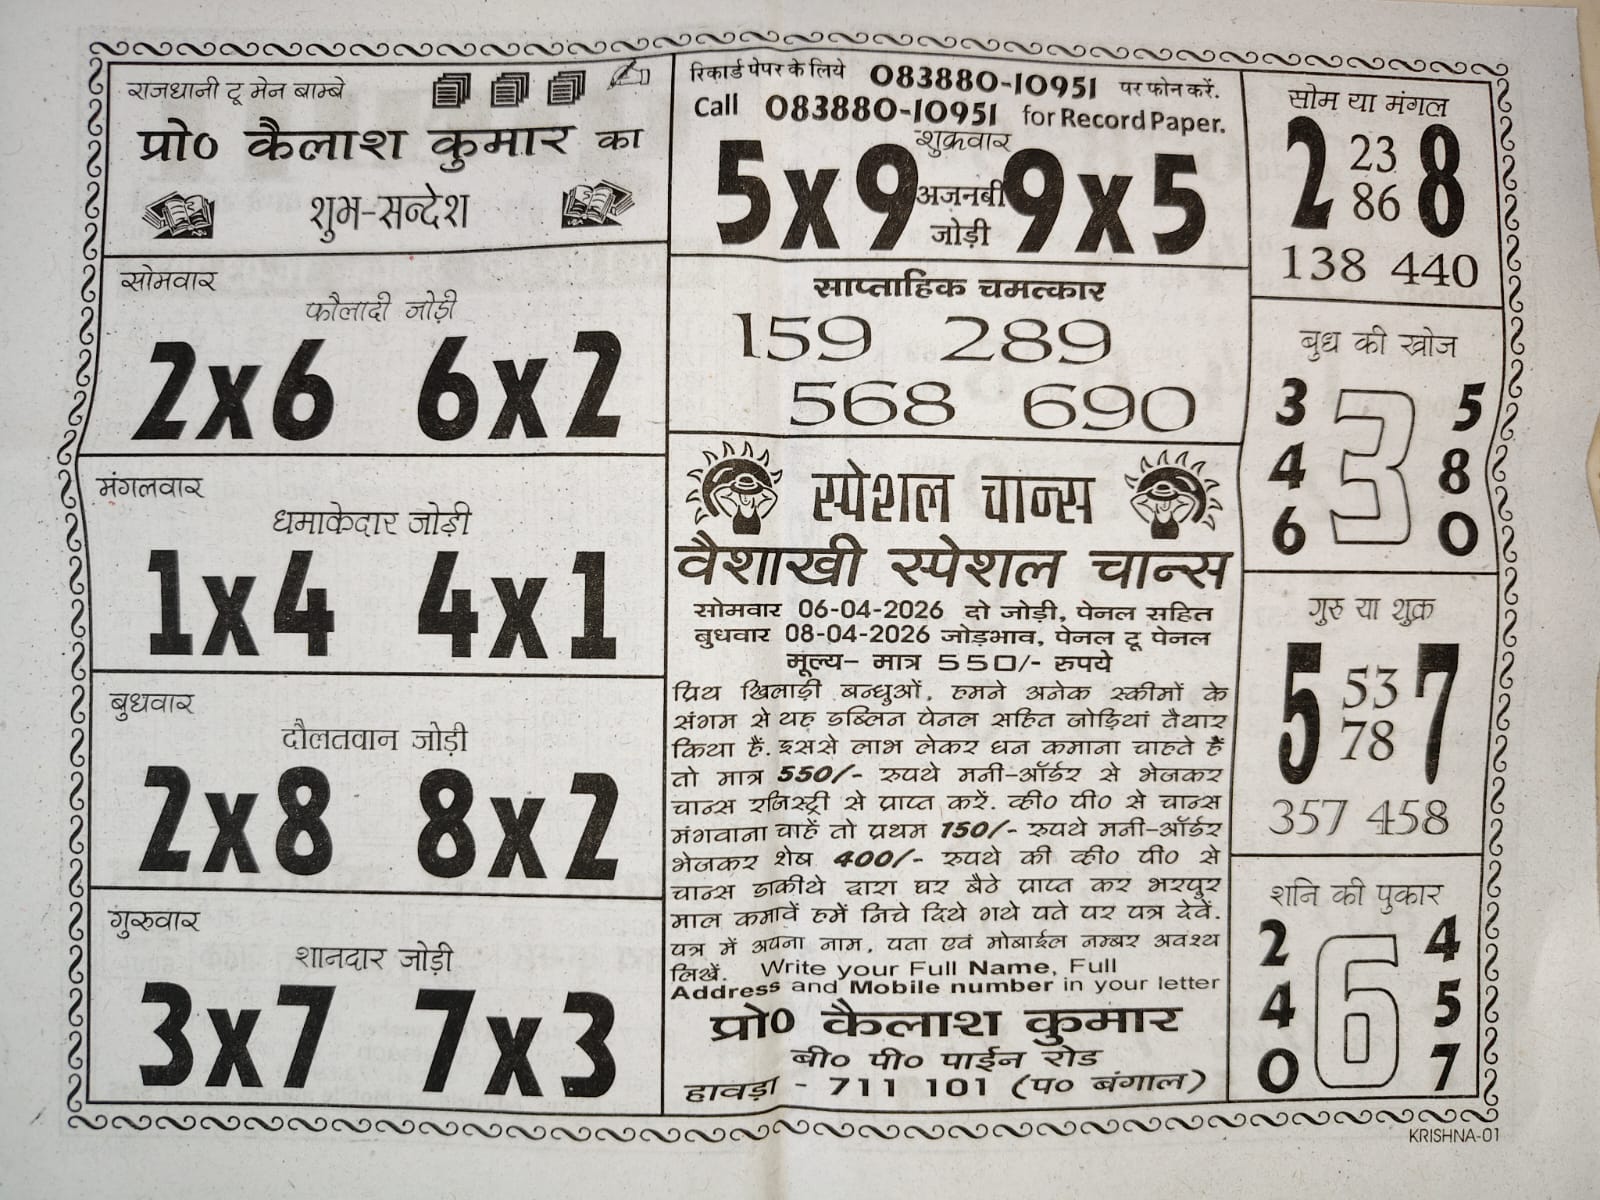 राजधानी टू मेन बाम्बे
प्रो० कैलाश कुमार का
शुभ-सन्देश
सोमवार
फौलादी जोड़ी
2x6 6x2
मंगलवार
धमाकेदार जोड़ी
1x4 4x1
बुधवार
दौलतवान जोड़ी
2x8 8x2
गुरुवार
शानदार जोड़ी
3x7 7x3
रिकार्ड पेपर के लिये 083880-10951 पर फोन करें.
Call 083880-10951 for Record Paper.
शुक्रवार
5x9 अजनबी जोड़ी 9x5
साप्ताहिक चमत्कार
159 289
568 690
स्पेशल चान्स
वैशाखी स्पेशल चान्स
सोमवार 06-04-2026 दो जोड़ी, पेनल सहित
बुधवार 08-04-2026 जोड़भाव, पेनल टू पेनल
मूल्य- मात्र 550/- रुपये
प्रिय खिलाड़ी बन्धुओं, हमने अनेक स्कीमों के
संगम से यह डब्लिन पेनल सहित जोड़ियां तैयार
किया हैं. इससे लाभ लेकर धन कमाना चाहते हैं
तो मात्र 550/- रुपये मनी-ऑर्डर से भेजकर
चान्स रजिस्ट्री से प्राप्त करें. व्ही० पी० से चान्स
मंगवाना चाहें तो प्रथम 150/- रुपये मनी-ऑर्डर
भेजकर शेष 400/- रुपये की व्ही० पी० से
चान्स डाकीये द्वारा घर बैठे प्राप्त कर भरपुर
माल कमावें हमें निचे दिये गये पते पर पत्र देवें.
पत्र में अपना नाम, पता एवं मोबाईल नम्बर अवश्य
लिखें. Write your Full Name, Full
Address and Mobile number in your letter
प्रो० कैलाश कुमार
बी० पी० पाईन रोड
हावड़ा - 711 101 (प० बंगाल)
सोम या मंगल
2 23 8
86
138 440
बुध की खोज
3 5
4 3 8
6 0
गुरु या शुक्र
5 53 7
78
357 458
शनि की पुकार
2 4
4 6 5
0 7
KRISHNA-01